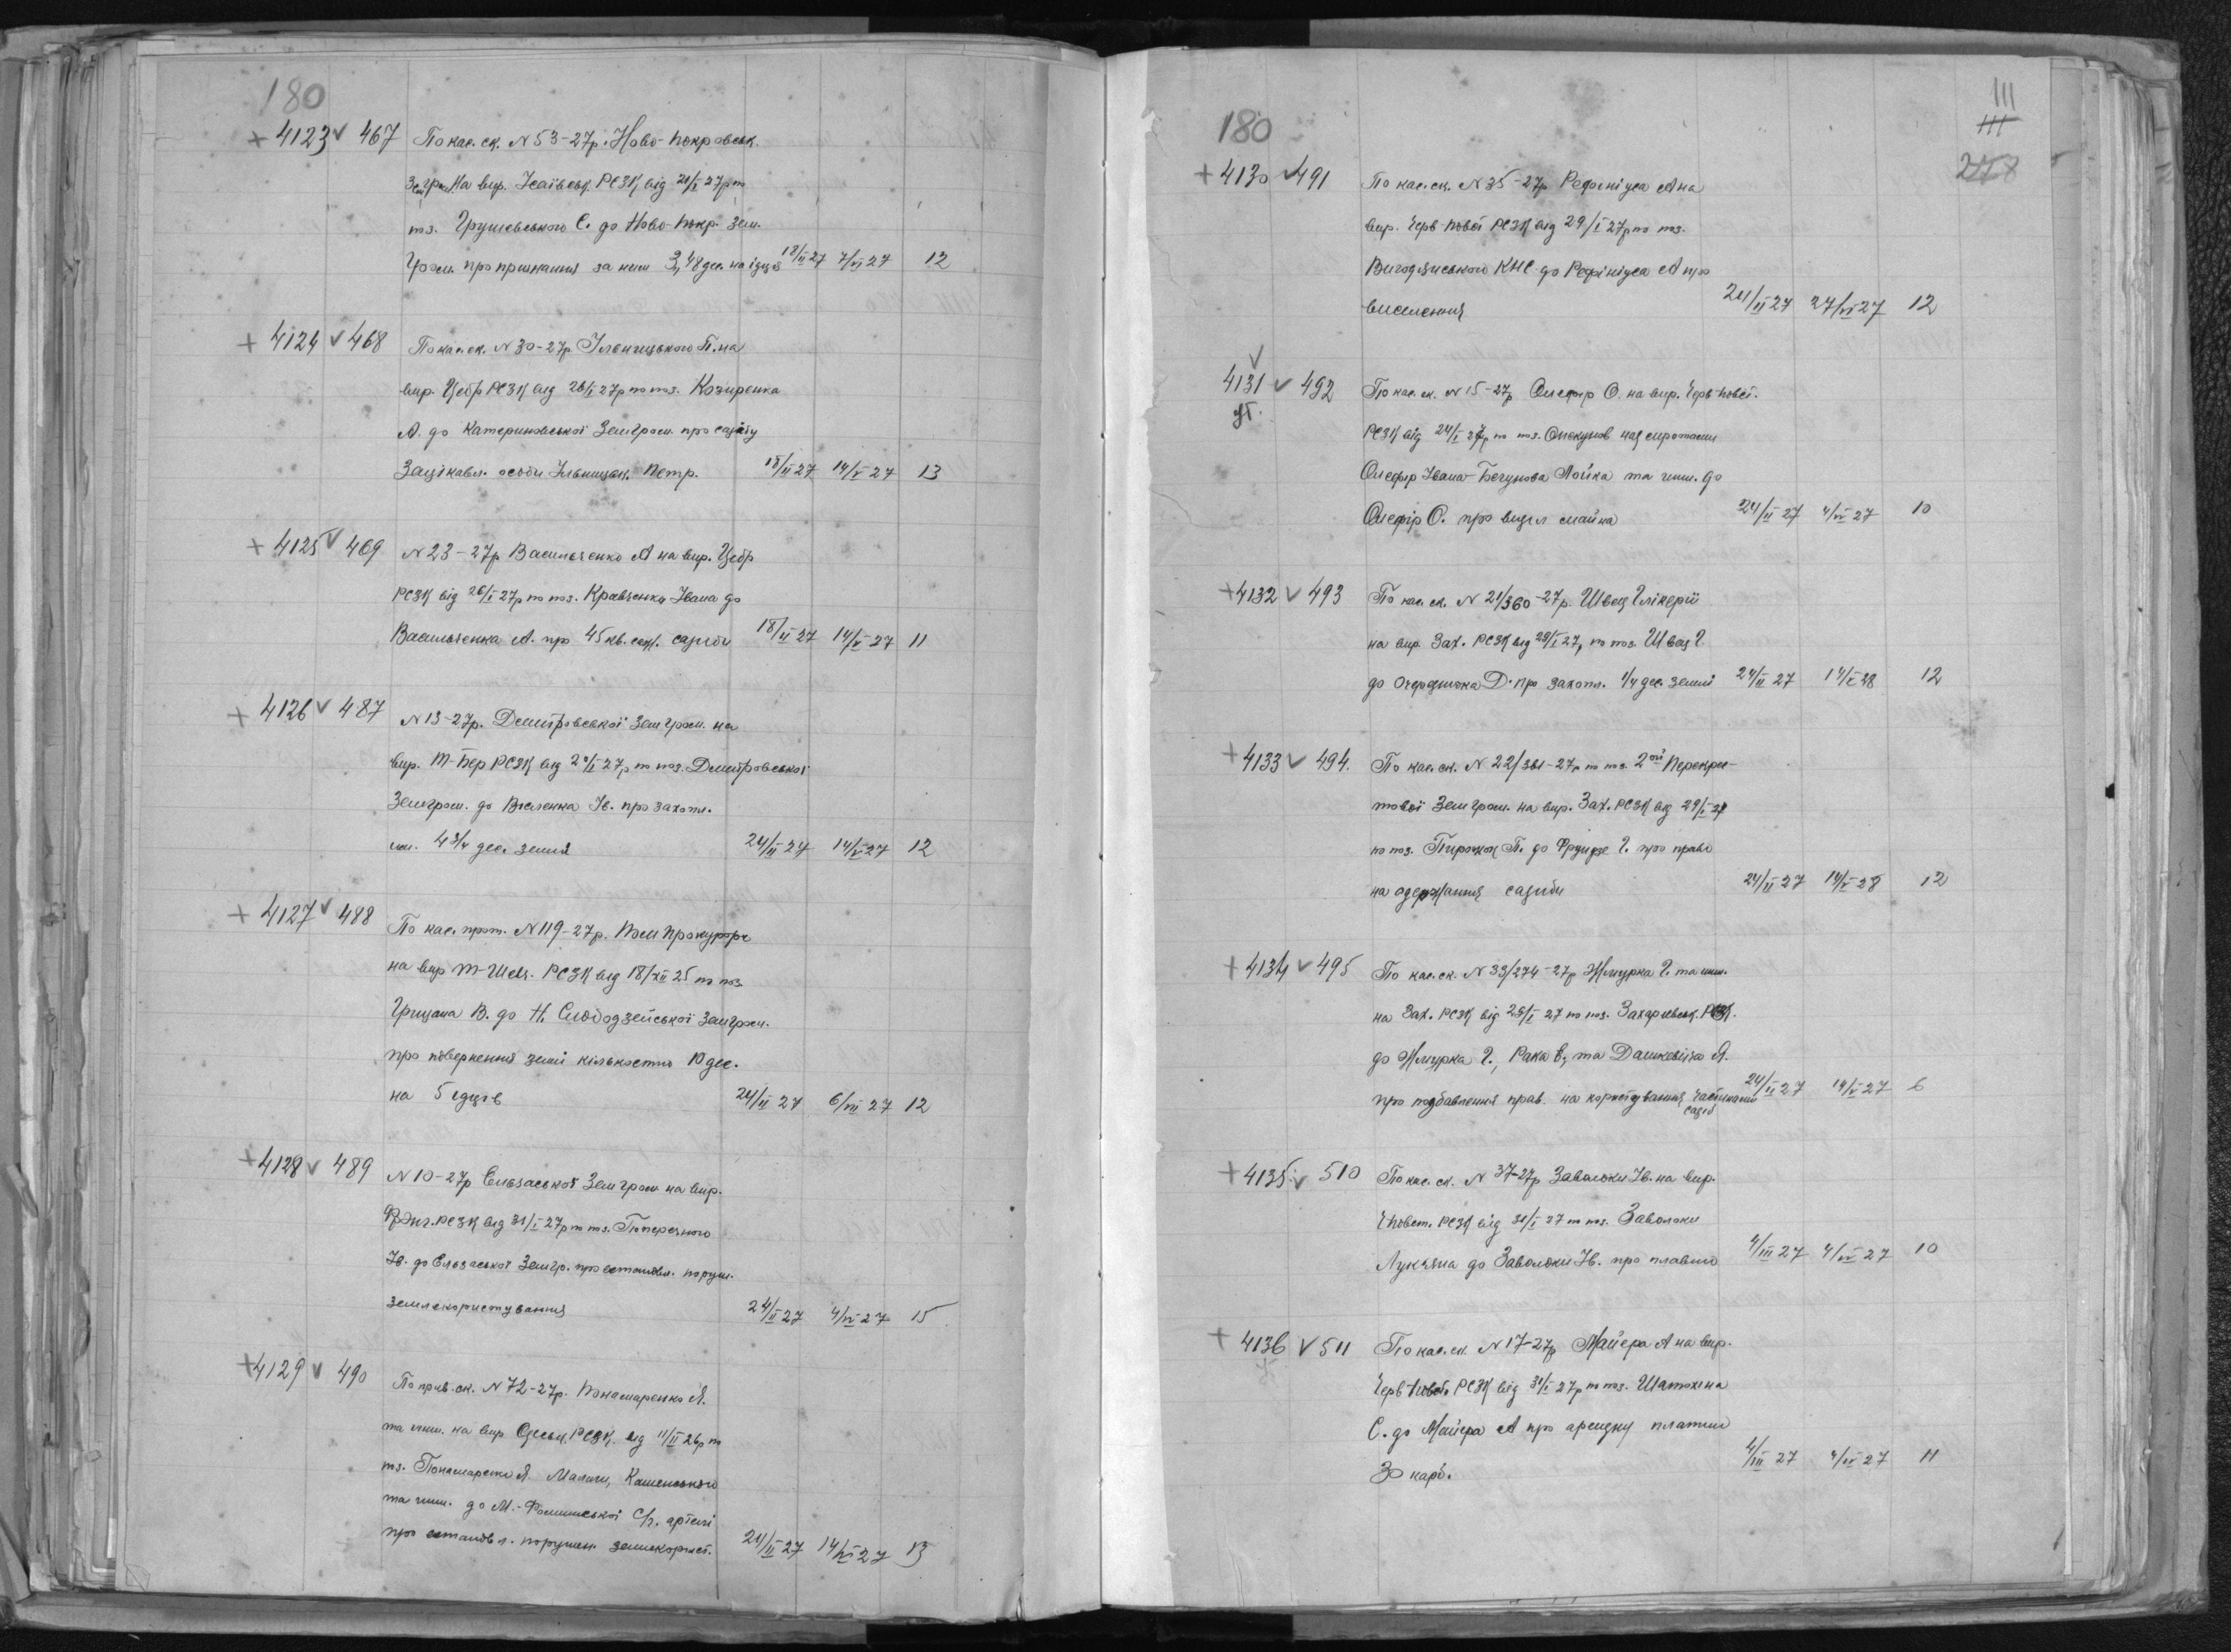 180
+ 4123 v 467 По кас. ск. N 53-27р. Ново-Покровськ.
Земгром. На вир. Ісаївськ. РСЗК від 20/I 27р. по
поз. Грушевського С. до Ново-Покр. Зем.
Гром. про признання за ним 3,48 дес. на їдців 18/II 27 7/VI 27 12
+ 4124 v 468 По кас. ск. N 30-27р. Ільницького П. на
вир. Цебр РСЗК від 26/I 27р по поз. Козиренка
А. до Катериновської Земгром. про садибу
Зацікавл. особи Ільницьк. Петр. 18/II 27 14/V 27 13
+ 4125 v 469 N 23-27р Васильченко А на вир. Цебр
РСЗК від 26/I 27р по поз. Кравченка Івана до
Васильченка А. про 45 кв. саж. садиби 18/II 27 14/V 27 11
+ 4126 v 487 N 13-27р. Дмитровської Земгром. на
вир. Т-Бер РСЗК від 20/I 27р по поз. Дмитровської
Земгром. до Ів. про захопл.
4 3/4 дес. землі 24/II 27 14/V 27 12
+ 4127 v 488 По кас. прот. N 119-27р. Пом Прокурора
на вир Т-Шев. РСЗК від 18/XII 25 по поз.
Грищана В. до Н. Слободзейської Земгром.
про повернення землі кількостю 10 дес.
на 5 їдців 24/II 27 6/VII 27 12
+ 4128 v 489 N 10-27р Ельзаської Земгром на вир.
РСЗК від 31/I 27р по поз. Поперечного
Ів. до Ельзаської Земгр. про встановл. поруш.
землекористування 24/II 27 4/VI 27 15
+ 4129 v 490 По прив. ск. N 72-27р. Понамаренко Я.
та инш. на вир Одеськ. РСЗК. від 11/II 26р по
поз. Понамаренко Я. Малиги, Каменського
та инш. до М.-Фоминської С/г. артілі
про встановл. порушен. землекорист. 24/II 27 14/VI 27 13
180
III
III
278
+ 4130 v 491 По кас. ск. N 35-27р Рефинiуса А на
вир. Черв-Повст РСЗК від 29/I 27р по поз.
Вигодянського КНС до Рефініуса А про
виселення 24/II 27 27/VI 27 12
v
4131 v 492 По кас. ск. N 15-27р Олефір О. на вир. Черв-Повст.
РСЗК від 24/I 27р по поз. Опекунов над сиротами
Олефір Івана-Бегунова Лойка та инш. до
Олефір О. про виділ майна 24/II 27 4/VI 27 10
+ 4132 v 493 По кас. ск. N 21/360-27р. Швец Глікерії
на вир. Зах. РСЗК від 29/I 27, по поз. Швец Г.
до Очередника Д. про захопл. 1/4 дес. землі 24/II 27 14/V 28 12
+ 4133 v 494. По кас. ск. N 22/361-27р по поз. 2ої Перекрес-
тової Земгром. на вир. Зах. РСЗК від 29/I 27
по поз. Пирожок П. до Фрундзе Г. про право
на одержання садиби 24/II 27 14/V 28 12
+ 4134 v 495 По кас. ск. N 33/274-27р Жмурка Г. та инш.
на Зах. РСЗК від 25/I 27 по поз. Захаревськ. РЗК.
до Жмурка Г., Рака В, та Дашкевіча Я.
про позбавлення прав. на користування частинами
садиб 24/II 27 14/V 27 6
+ 4135 v 510 По кас. ск. N 37-27р Заволоки Ів. на вир.
ЧПовст. РСЗК від 31/I 27 по поз. Заволоки
Лукяна до Заволоки Ів. про платню 4/III 27 4/VI 27 10
+ 4136 v 511 По кас. ск. N 17-27р Майера А на вир.
Черв-Повст. РСЗК від 31/I 27р по поз. Шатохина
С. до Майера А про арендну платню
30 карб. 4/III 27 4/VI 27 11